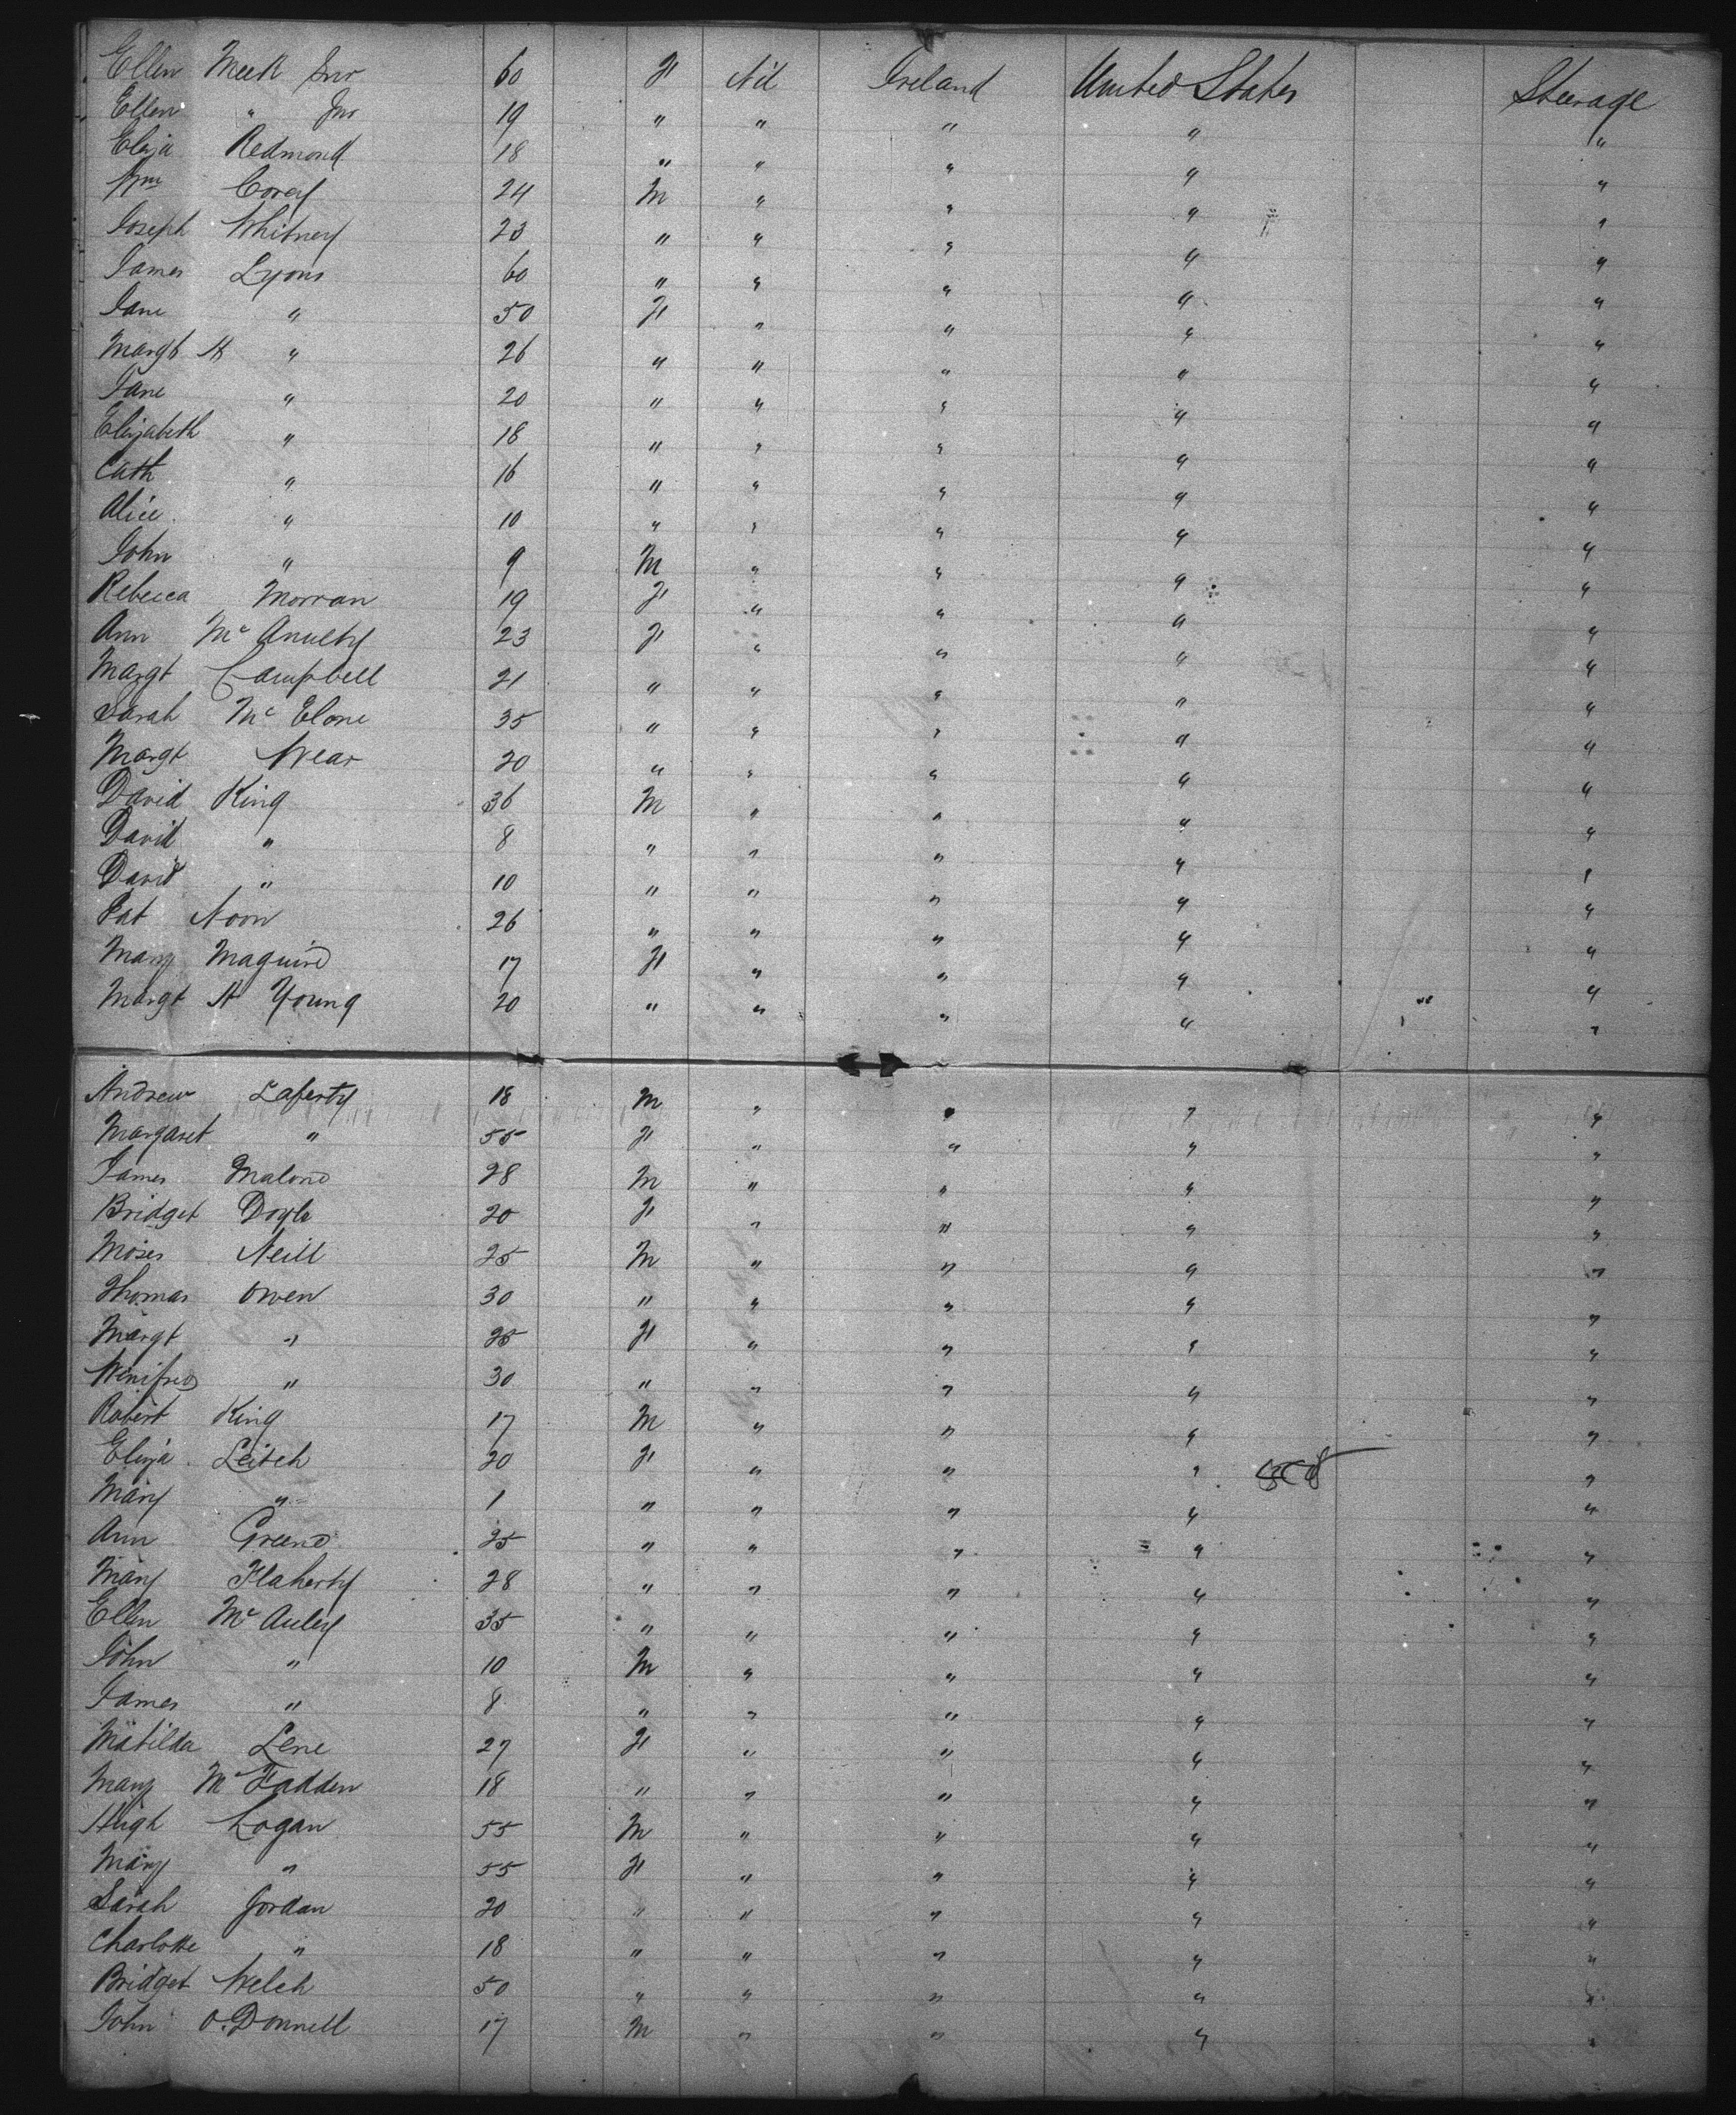 Ellen Meek Snr 60 F Nil Ireland United States Steerage
Ellen " Jnr 19 " " " " "
Eliza Redmond 18 " " " " "
Wm Corey 24 M " " " "
Joseph Whitney 23 " " " " "
James Lyons 60 " " " " "
Jane " 50 F " " " "
Margt A " 26 " " " " "
Jane " 20 " " " " "
Elizabeth " 18 " " " " "
Cath " 16 " " " " "
Alice " 10 " " " " "
John " 9 M " " " "
Rebecca Morran 19 F " " " "
Ann Mc Anulty 23 F " " " "
Margt Campbell 21 " " " " "
Sarah Mc Elone 35 " " " " "
Margt Wear 20 " " " " "
David King 36 M " " " "
David " 8 " " " " "
David " 10 " " " " "
Pat Noon 26 " " " " "
Mary Maguire 17 F " " " "
Margt A Young 20 " " " " "
Andrew Laferty 18 M " " " "
Margaret " 55 F " " " "
James Malone 28 M " " " "
Bridget Doyle 20 F " " " "
Moses Neill 25 M " " " "
Thomas Owen 30 " " " " "
Margt " 25 F " " " "
Winifred " 30 " " " " "
Robert King 17 M " " " "
Eliza Leitch 20 F " " " "
Mary " 1 " " " " "
Ann Greene 25 " " " " "
Mary Flaherty 28 " " " " "
Ellen Mc Auley 35 " " " " "
John " 10 M " " " "
James " 8 " " " " "
Matilda Lene 27 F " " " "
Mary Mc Fadden 18 " " " " "
Hugh Logan 55 M " " " "
Mary " 55 F " " " "
Sarah Jordan 20 " " " " "
Charlotte " 18 " " " " "
Bridget Welch 50 " " " " "
John O'Donnell 17 M " " " "